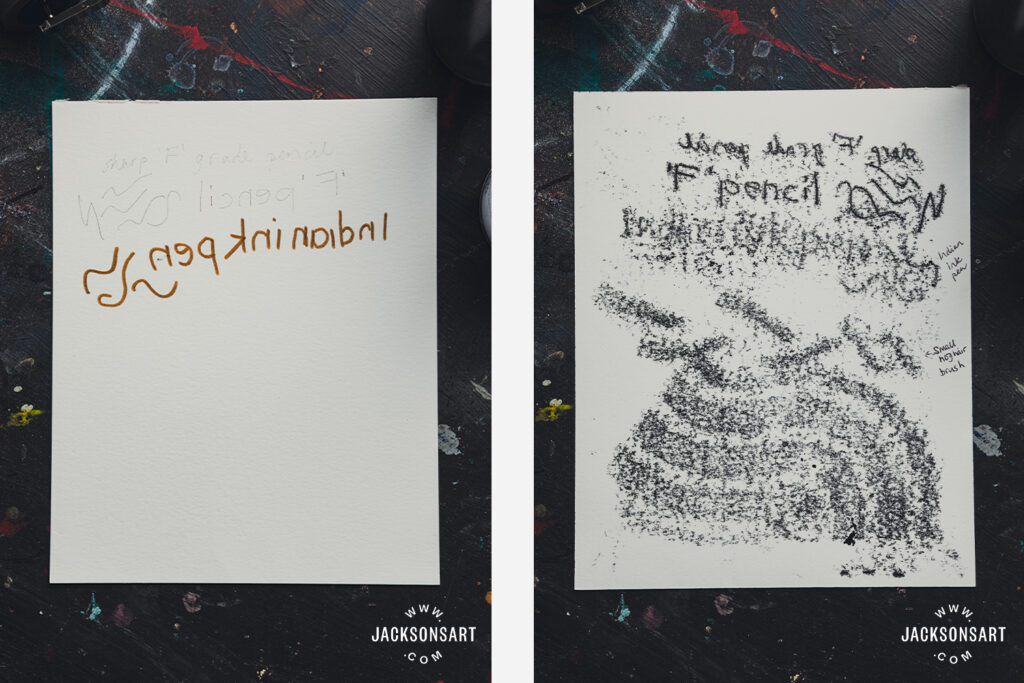 sharp 'F' grade pencil
'F' pencil
Indian ink pen
WWW.
JACKSONSART
.COM
sharp 'F' grade pencil
'F' pencil
Indian ink pen
Indian
ink
pen
<small
hoghair
brush
WWW.
JACKSONSART
.COM